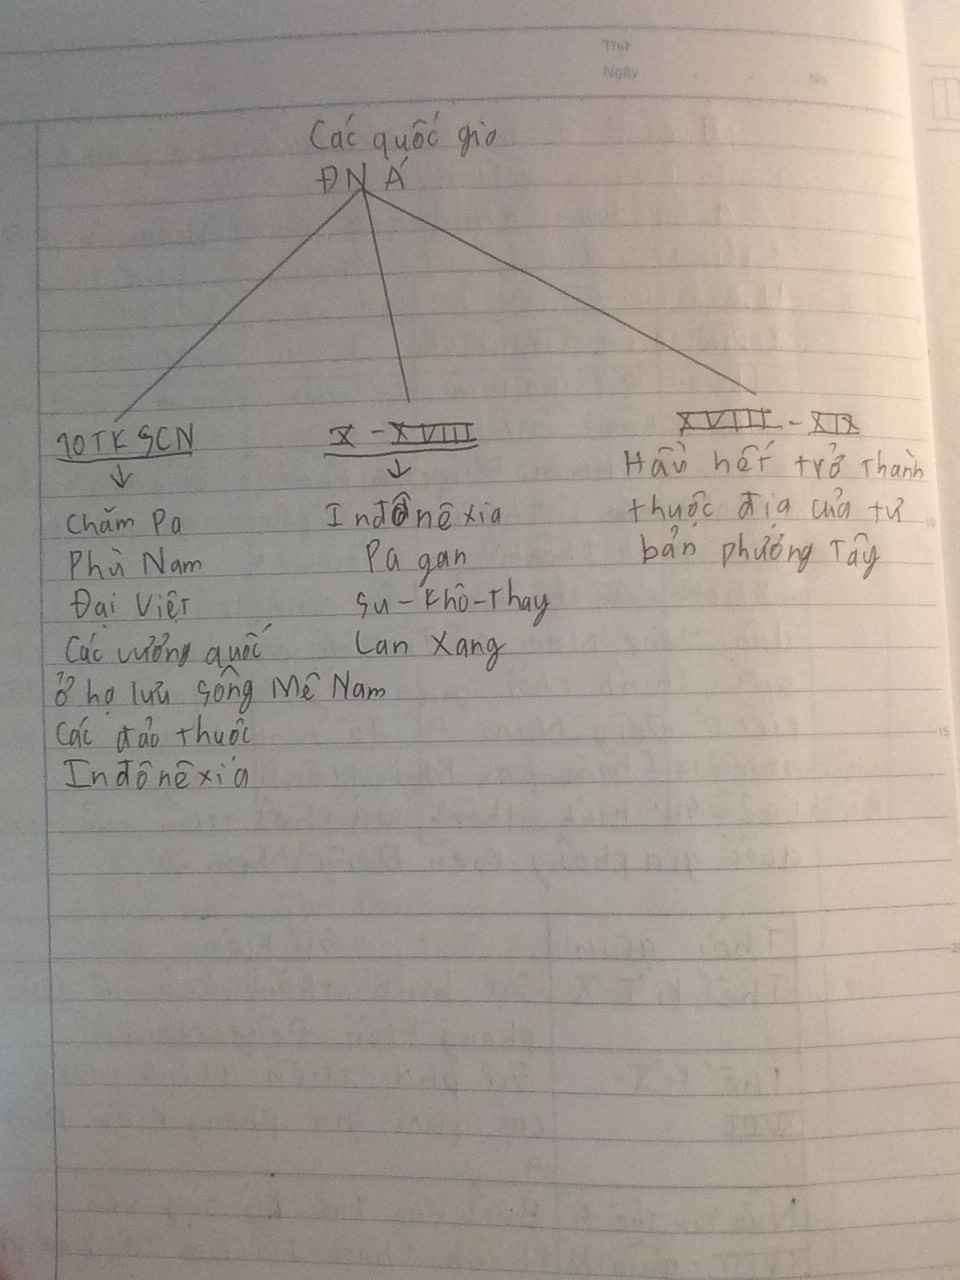 Thứ
Ngày
No
Các quốc gia
ĐN Á
10TK SCN
Chăm Pa
Phù Nam
Đại Việt
Các vương quốc
ở hạ lưu sông Mê Nam
Các đảo thuộc
Inđônêxia
X - XVIII
Inđônêxia
Pagan
Su-Khô-Thay
Lan Xang
XVIII - XIX
Hầu hết trở thành
thuộc địa của tư
bản phương Tây